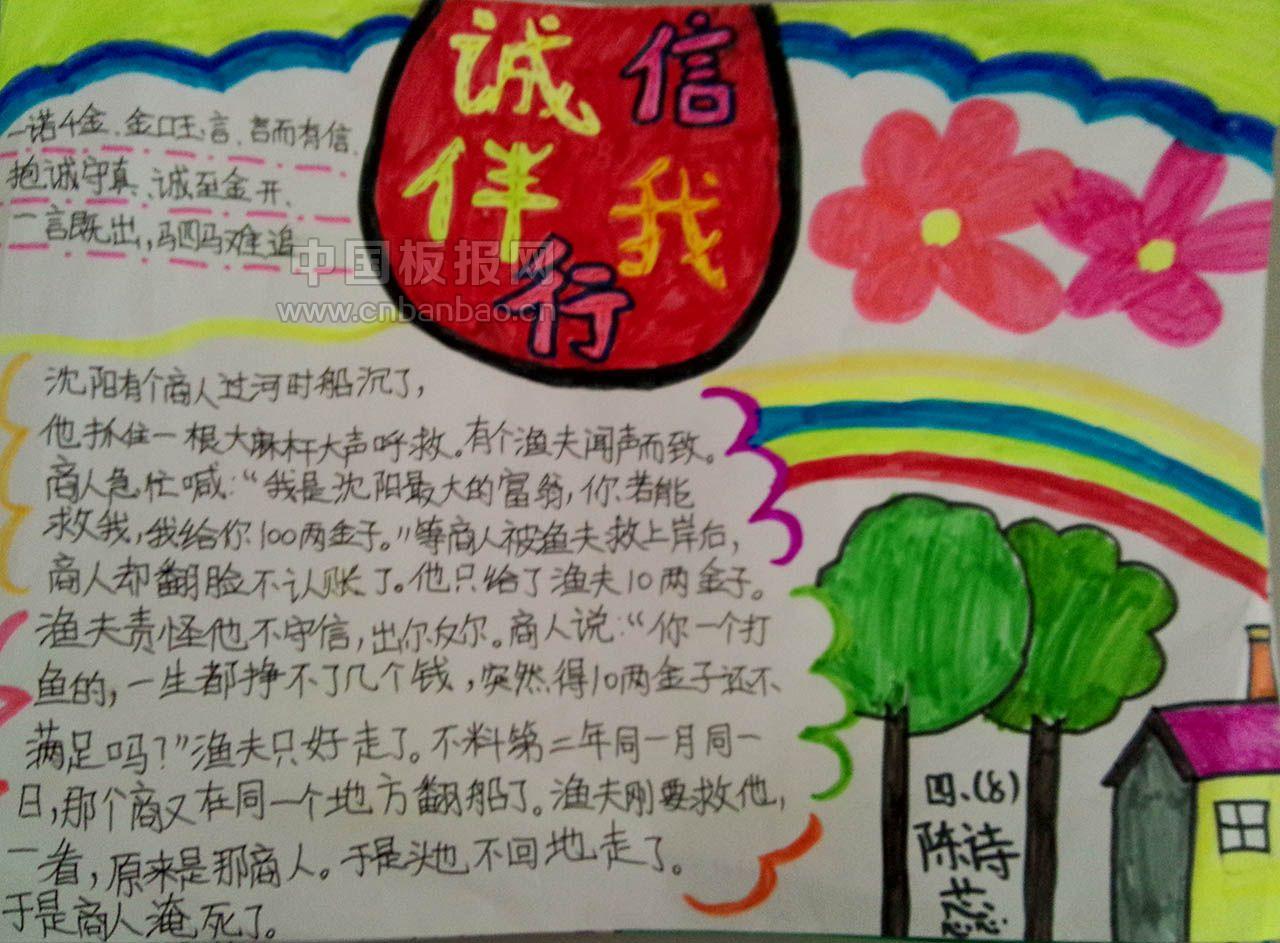 诚信
伴我
行
一诺千金、金口玉言、言而有信、
抱诚守真、诚至金开、
一言既出，驷马难追
中国板报网
www.cnbanbao.cn
沈阳有个商人过河时船沉了，
他抓住一根大麻杆大声呼救。有个渔夫闻声而致。
商人急忙喊：“我是沈阳最大的富翁，你若能
救我，我给你100两金子。”等商人被渔夫救上岸后，
商人却翻脸不认账了。他只给了渔夫10两金子。
渔夫责怪他不守信，出尔反尔。商人说：“你一个打
鱼的，一生都挣不了几个钱，突然得10两金子还不
满足吗？”渔夫只好走了。不料第二年同一月同一
日，那个商又在同一个地方翻船了。渔夫刚要救他，
一看，原来是那商人。于是头也不回地走了。
于是商人淹死了。
四、(8)
陈诗
蕊